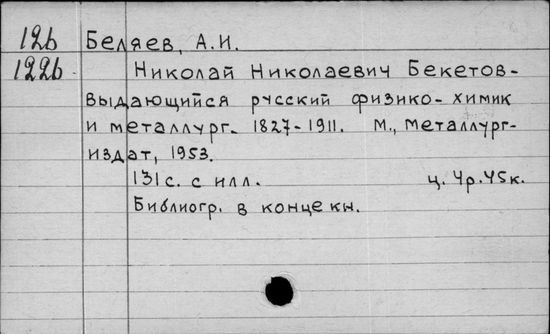 12б Беляев, А.И.
122б Николай Николаевич Бекетов-
выдающийся русский физико-химик
и металлург. 1827-1911. М., Металлург-
издат, 1953.
131с. с илл. ц. 4р.45к.
Библиогр. в конце кн.